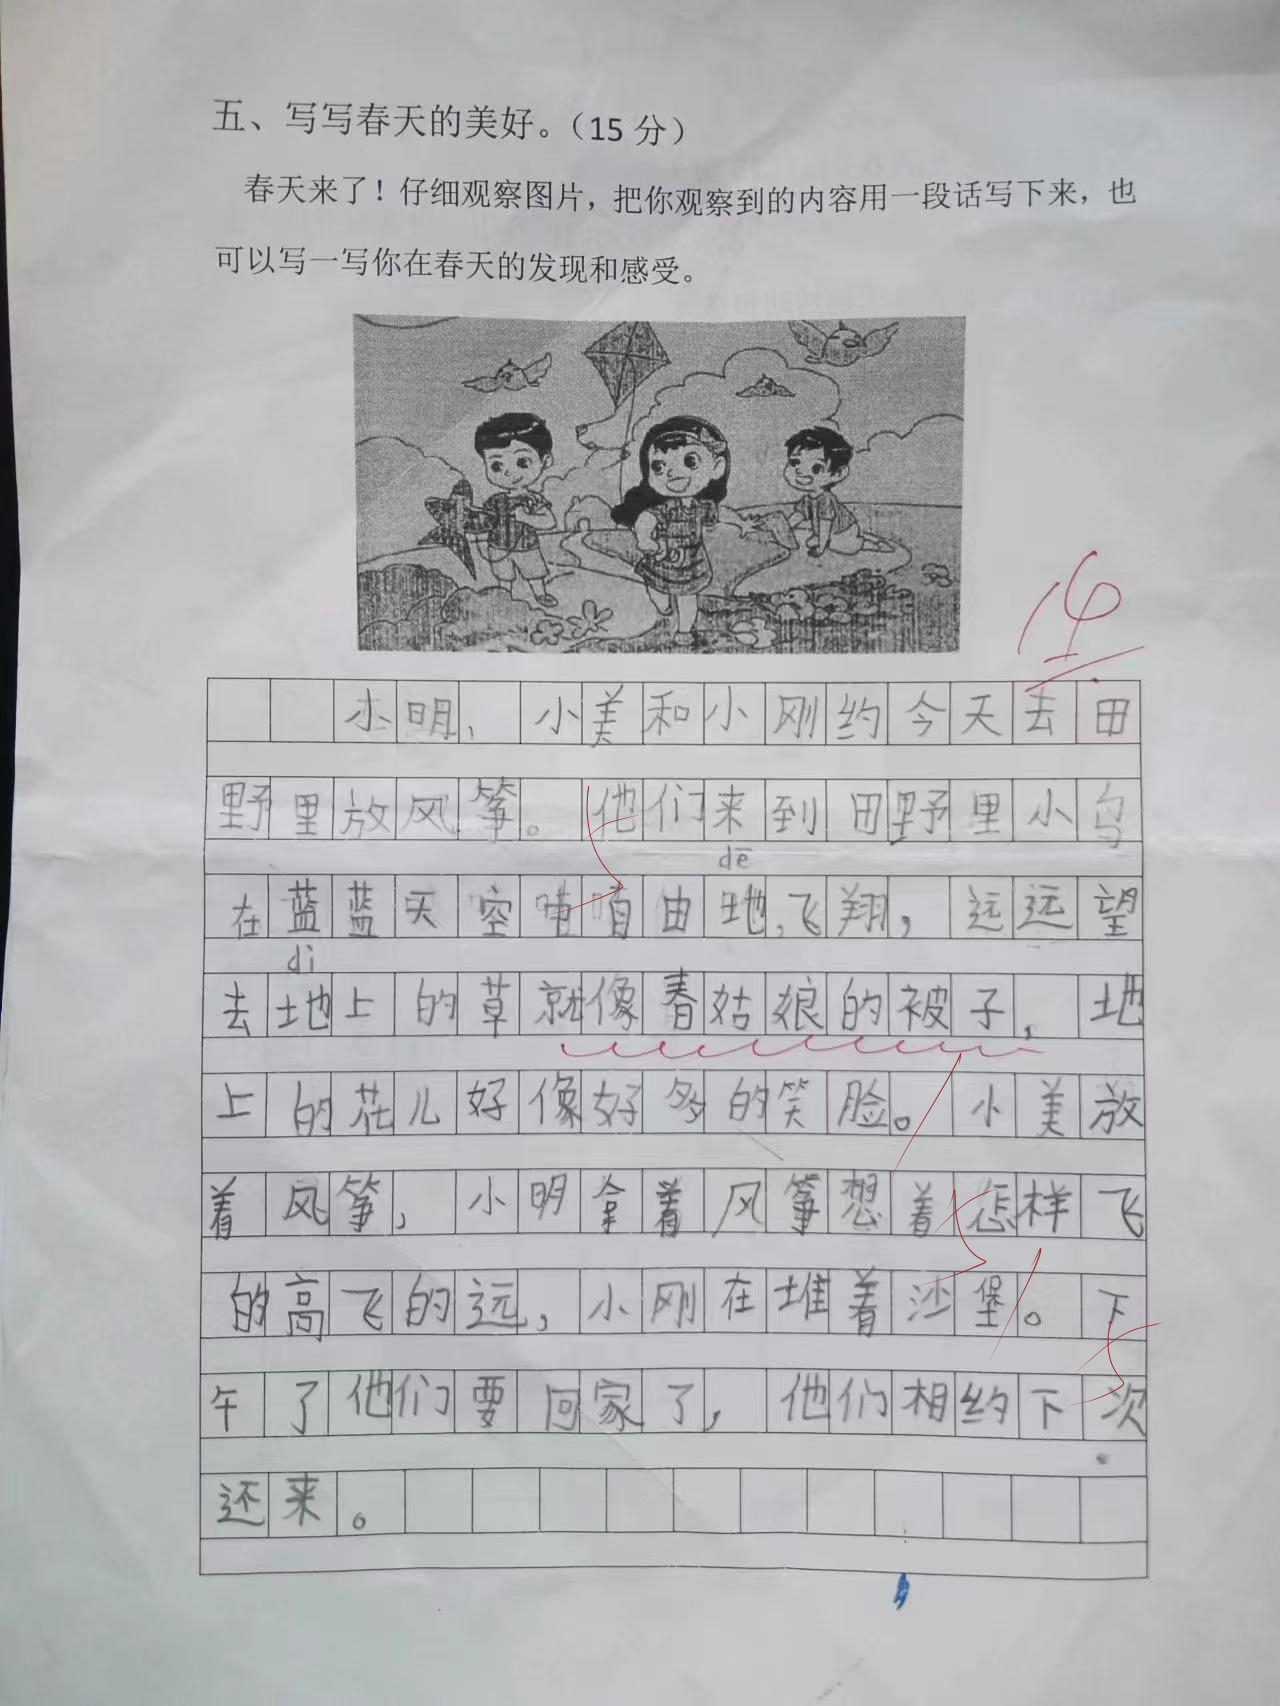 五、写写春天的美好。（15 分）
春天来了！仔细观察图片，把你观察到的内容用一段话写下来，也
可以写一写你在春天的发现和感受。
14
小明，小美和小刚约今天去田
野里放风筝。他们来到田野里小鸟
dē
在蓝蓝天空自由地飞翔，远远望
dì
去地上的草就像春姑娘的被子，地
上的花儿好像好多的笑脸。小美放
着风筝，小明拿着风筝想着怎样飞
的高飞的远，小刚在堆着沙堡。下
午了他们要回家了，他们相约下次
还来。